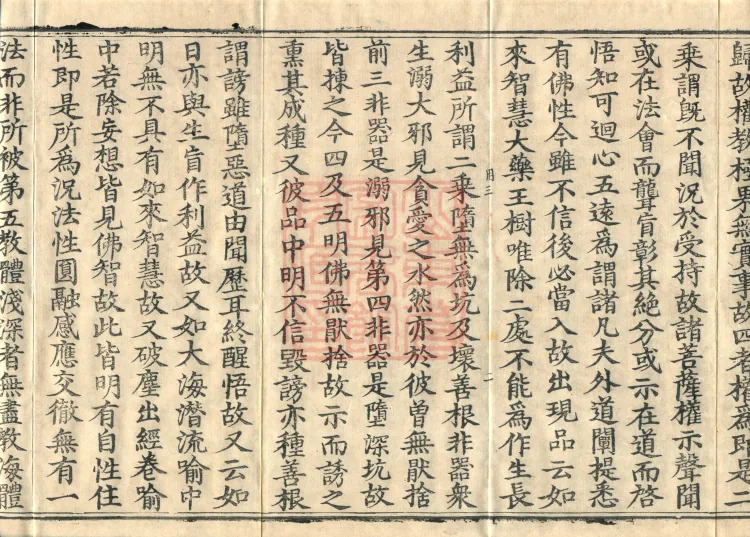 歸故權教極果無實事故四者權爲即是二
乘謂旣不聞況於受持故諸菩薩權示聲聞
或在法會而聾盲彰其絕分或示在道而啓
悟知可迴心五遠爲謂諸凡夫外道闡提悉
有佛性今雖不信後必當入故出現品云如
來智慧大藥王樹唯除二處不能爲作生長
用三
二
利益所謂二乘墮無爲坑及壞善根非器衆
生溺大邪見貪愛之水然亦於彼曾無猒捨
前三非器是溺邪見第四非器是墮深坑故
皆揀之今四及五明佛無猒捨故示而誘之
熏其成種又彼品中明不信毀謗亦種善根
謂謗雖墮惡道由聞歷耳終醒悟故又云如
日亦與生盲作利益故又如大海潛流喻中
明無不具有如來智慧故又破塵出經卷喻
中若除妄想皆見佛智故此皆明有自性住
性即是所爲況法性圓融感應交徹無有一
法而非所被第五教體淺深者無盡教海體